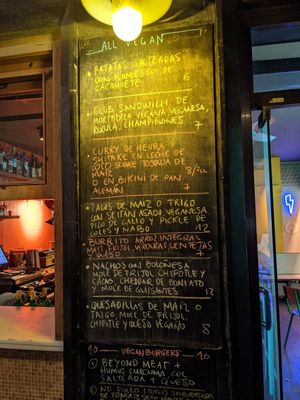 ALL VEGAN
• PATATAS SALTEADAS
CON ROMESCO DE
CACAHUETE 6
• CLUB SANDWICH DE
MORTADELA VEGANA, VEGANESA,
RÚCULA, CHAMPIÑONES 7
• CURRY DE HEURA Y
SHIITAKE EN LECHE DE
COCO SOBRE TOSTADA DE
MAÍZ 8/
O EN BIKINI DE PAN
ALEMÁN 7
• TACOS DE MAÍZ O TRIGO
CON SEITÁN ASADO, VEGANESA,
PICO DE GALLO Y PICKLE DE
COLES Y NABO 12
• BURRITO ARROZ INTEGRAL
MAÍZ, FRIJOL, VERDURAS LENTEJAS
QUESO 7
• NACHOS CON BOLOÑESA
MOLE DE FRIJOL CHIPOTLE Y
CACAO, CHEDDAR DE BONIATO
Y MOLE DE GUISANTES 12
• QUESADILLAS DE MAÍZ O
TRIGO, MOLE DE FRIJOL
CHIPOTLE Y QUESO VEGANO 8
10 VEGANBURGERS 10
BEYOND MEAT +
HUMUS CURCUMA, COL
SALTEADA + QUESO
NO POLLO SOBRASADA
DE TOMATE